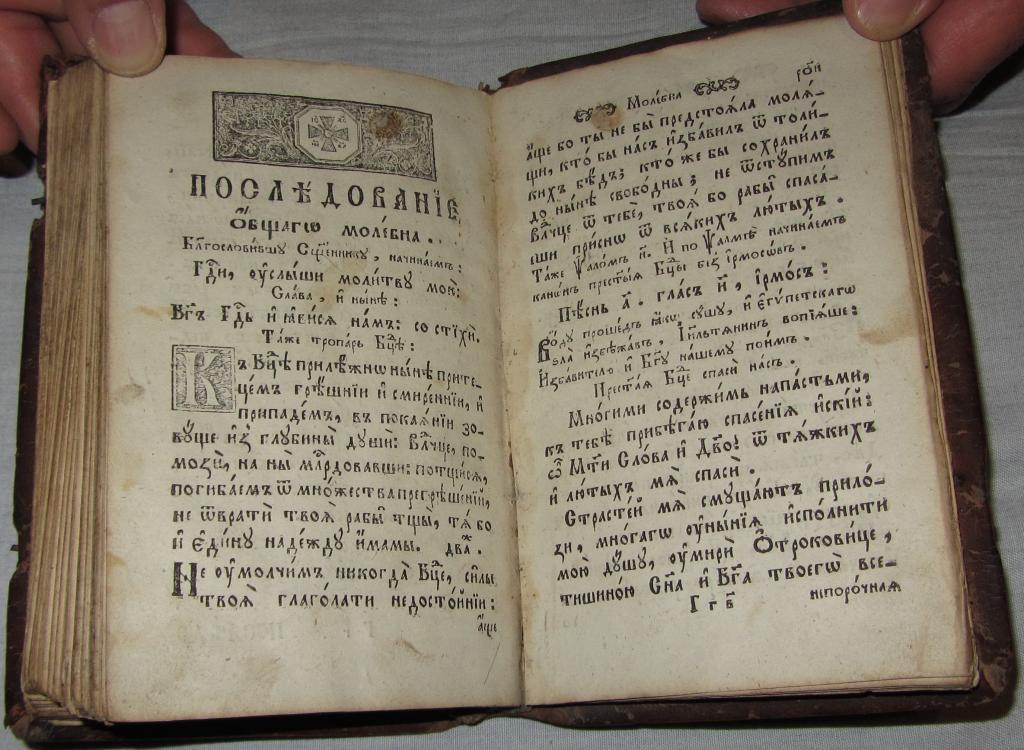 ПОСЛѢДОВАНІЕ
Ѻ҆́бщагѡ моле́бна.
Бл҃гослови́вшу Сщ҃е́ннику, начина́емъ:
Гдⷭ҇и, ѹ҆слы́ши моли́тву мою̀:
Сла́ва, и҆ ны́нѣ:
Бг҃ъ Гдⷭ҇ь и҆ ꙗ҆ви́сѧ на́мъ: со стїхѝ.
Та́же тропа́рь Бцⷣѣ:
Къ Бцⷣѣ прилѣ́жнѡ ны́нѣ прите-
це́мъ грѣ́шнїи и҆ смире́ннїи, и҆
припаде́мъ, въ покаѧ́нїи зо-
ву́ще и҆з̾ глубины̀ душѝ: Влⷣчце, по-
мозѝ, на ны̀ млⷭ҇рдовавши: потщи́сѧ,
погиба́емъ ѿ мно́жества прегрѣше́нїй,
не ѿвратѝ твоѧ̑ рабы̑ тщы̀, тѧ́ бо
и҆ є҆ди́ну наде́жду и҆́мамы. два́ж.
Не ѹ҆молчи́мъ никогда̀ Бцⷣе, си̑лы
твоѧ̑ глаго́лати недосто́йнїи:
а҆́ще
Моле́бна рои
а҆́ще бо ты̀ не бы̀ предстоѧ́ла молѧ́-
щи, кто́ бы на́съ и҆зба́вилъ ѿ толи́-
кихъ бѣ́дъ; кто́ же бы сохрани́лъ
до ны́нѣ свобо́дны; не ѿсту́пимъ
Влⷣчце ѿ тебѐ, твоѧ̑ бо рабы̑ спаса́-
еши при́снѡ ѿ всѧ́кихъ лю́тыхъ.
Та́же Ѱало́мъ н҃. И по Ѱалмѣ̀ начина́емъ
кано́нъ прест҃ы́ѧ Бцⷣы без̾ і҆рмосѡ́въ.
Пѣ́снь а҃. гла́съ и҃, і҆рмо́съ:
Во́ду проше́дъ ꙗ҆́кѡ су́шу, и҆ є҆гѵ́петскагѡ
ѕла̀ и҆збѣжа́въ, І҆и҃лътѧнинъ вопїѧ́ше:
И҆зба́вителю и҆ Бг҃у на́шему пои́мъ.
Прест҃а́ѧ Бцⷣе спасѝ на́съ.
Мно́гими содержи́мь напа́стьми,
къ тебѣ̀ прибѣга́ю спасе́нїѧ и҆скі́й:
ѽ Мт҃и Сло́ва и҆ Дв҃о! ѿ тѧ́жкихъ
и҆ лю́тыхъ мѧ̀ спасѝ.
Страсте́й мѧ̀ смуща́ютъ прило́-
зи, мно́гагѡ ѹ҆ны́нїѧ и҆спо́лнити
мою̀ ду́шу, ѹ҆мирѝ Ѻ҆трокови́це,
тишино́ю Сн҃а и҆ Бг҃а твоегѡ̀ все-
Г г в҃ непоро́чнаѧ